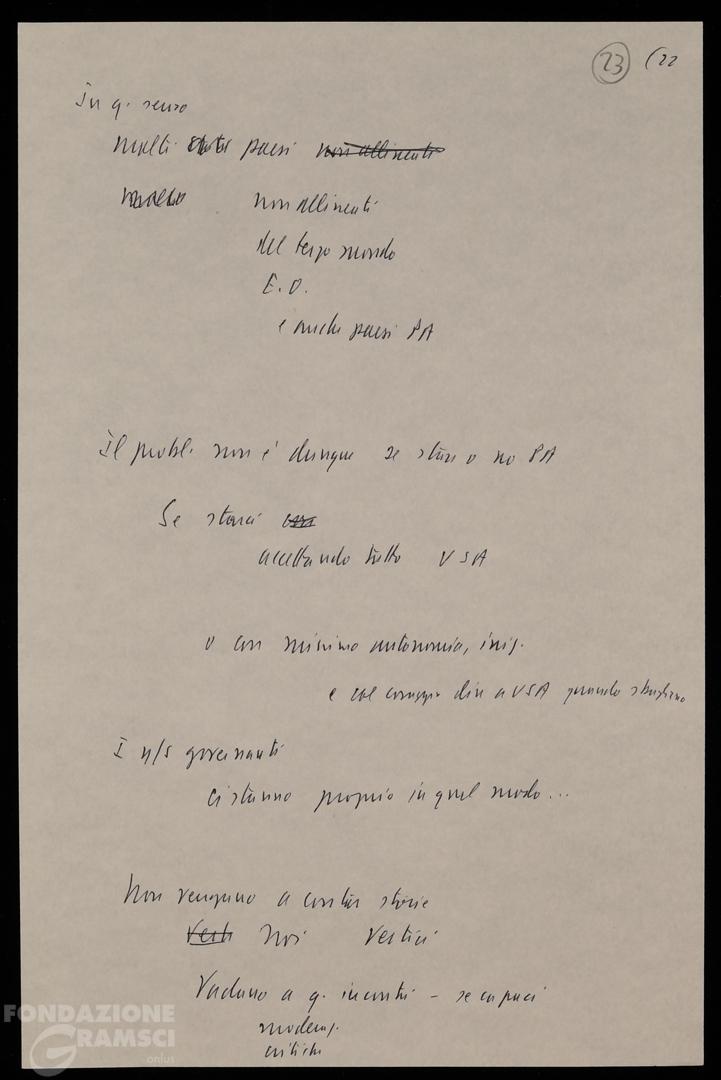 23 (22
In q. senso
molti stati paesi non allineati
non allineati
del terzo mondo
E. O.
e anche paesi PA
Il probl. non è dunque se starci o no PA
Se starci con
accettando tutto USA
o con minimo autonomia, iniz.
e col coraggio dire a USA quando sbagliano
I n/s governanti
ci stanno proprio in quel modo...
Non vengano a contar storie
Verti Noi Vertici
Vadano a q. incontri - se capaci
critiche
FONDAZIONE
GRAMSCI
onlus